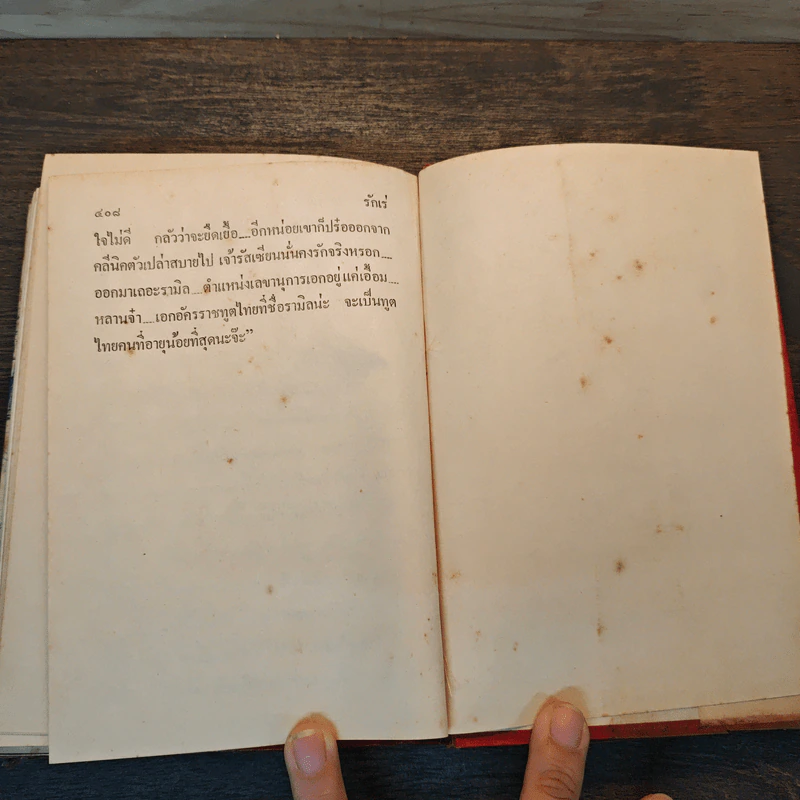 ๔๐๘ รักเร่
ใจไม่ดี กลัวว่าจะยืดเยื้อ....อีกหน่อยเขาก็ปร๋อออกจาก
คลีนิคตัวเปล่าสบายไป เจ้ารัสเซียนนั่นคงรักจริงหรอก....
ออกมาเถอะรามิล....ตำแหน่งเลขานุการเอกอยู่แค่เอื้อม....
หลานจ๋า....เอกอัครราชทูตไทยที่ชื่อรามิลน่ะ จะเป็นทูต
ไทยคนที่อายุน้อยที่สุดนะจ๊ะ”